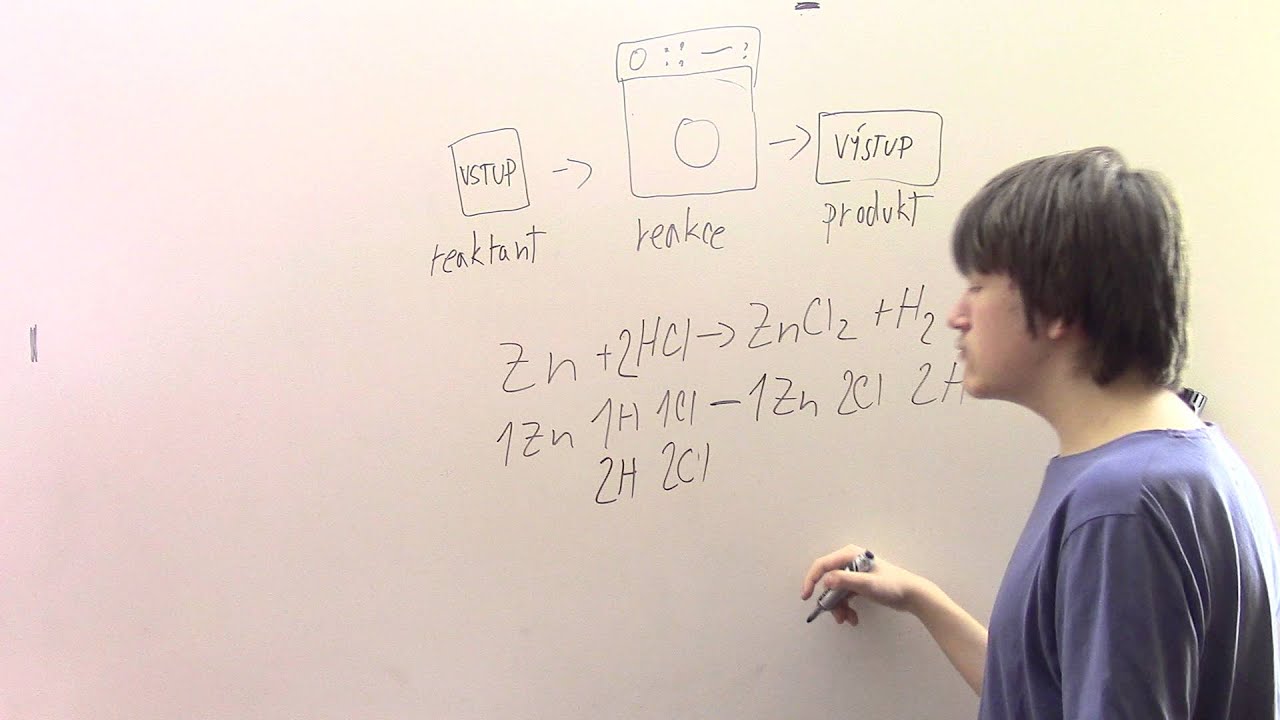 VSTUP
VÝSTUP
reaktant
reakce
produkt
Zn + 2HCl → ZnCl₂ + H₂
1Zn 1H 1Cl – 1Zn 2Cl 2H
2H 2Cl